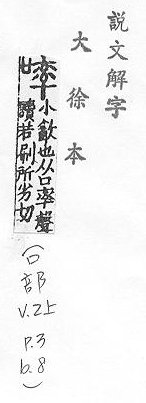 說文解字
大徐本
小飲也从口率聲
讀若刷所劣切
(口部
V.2上
P.3
b.8)